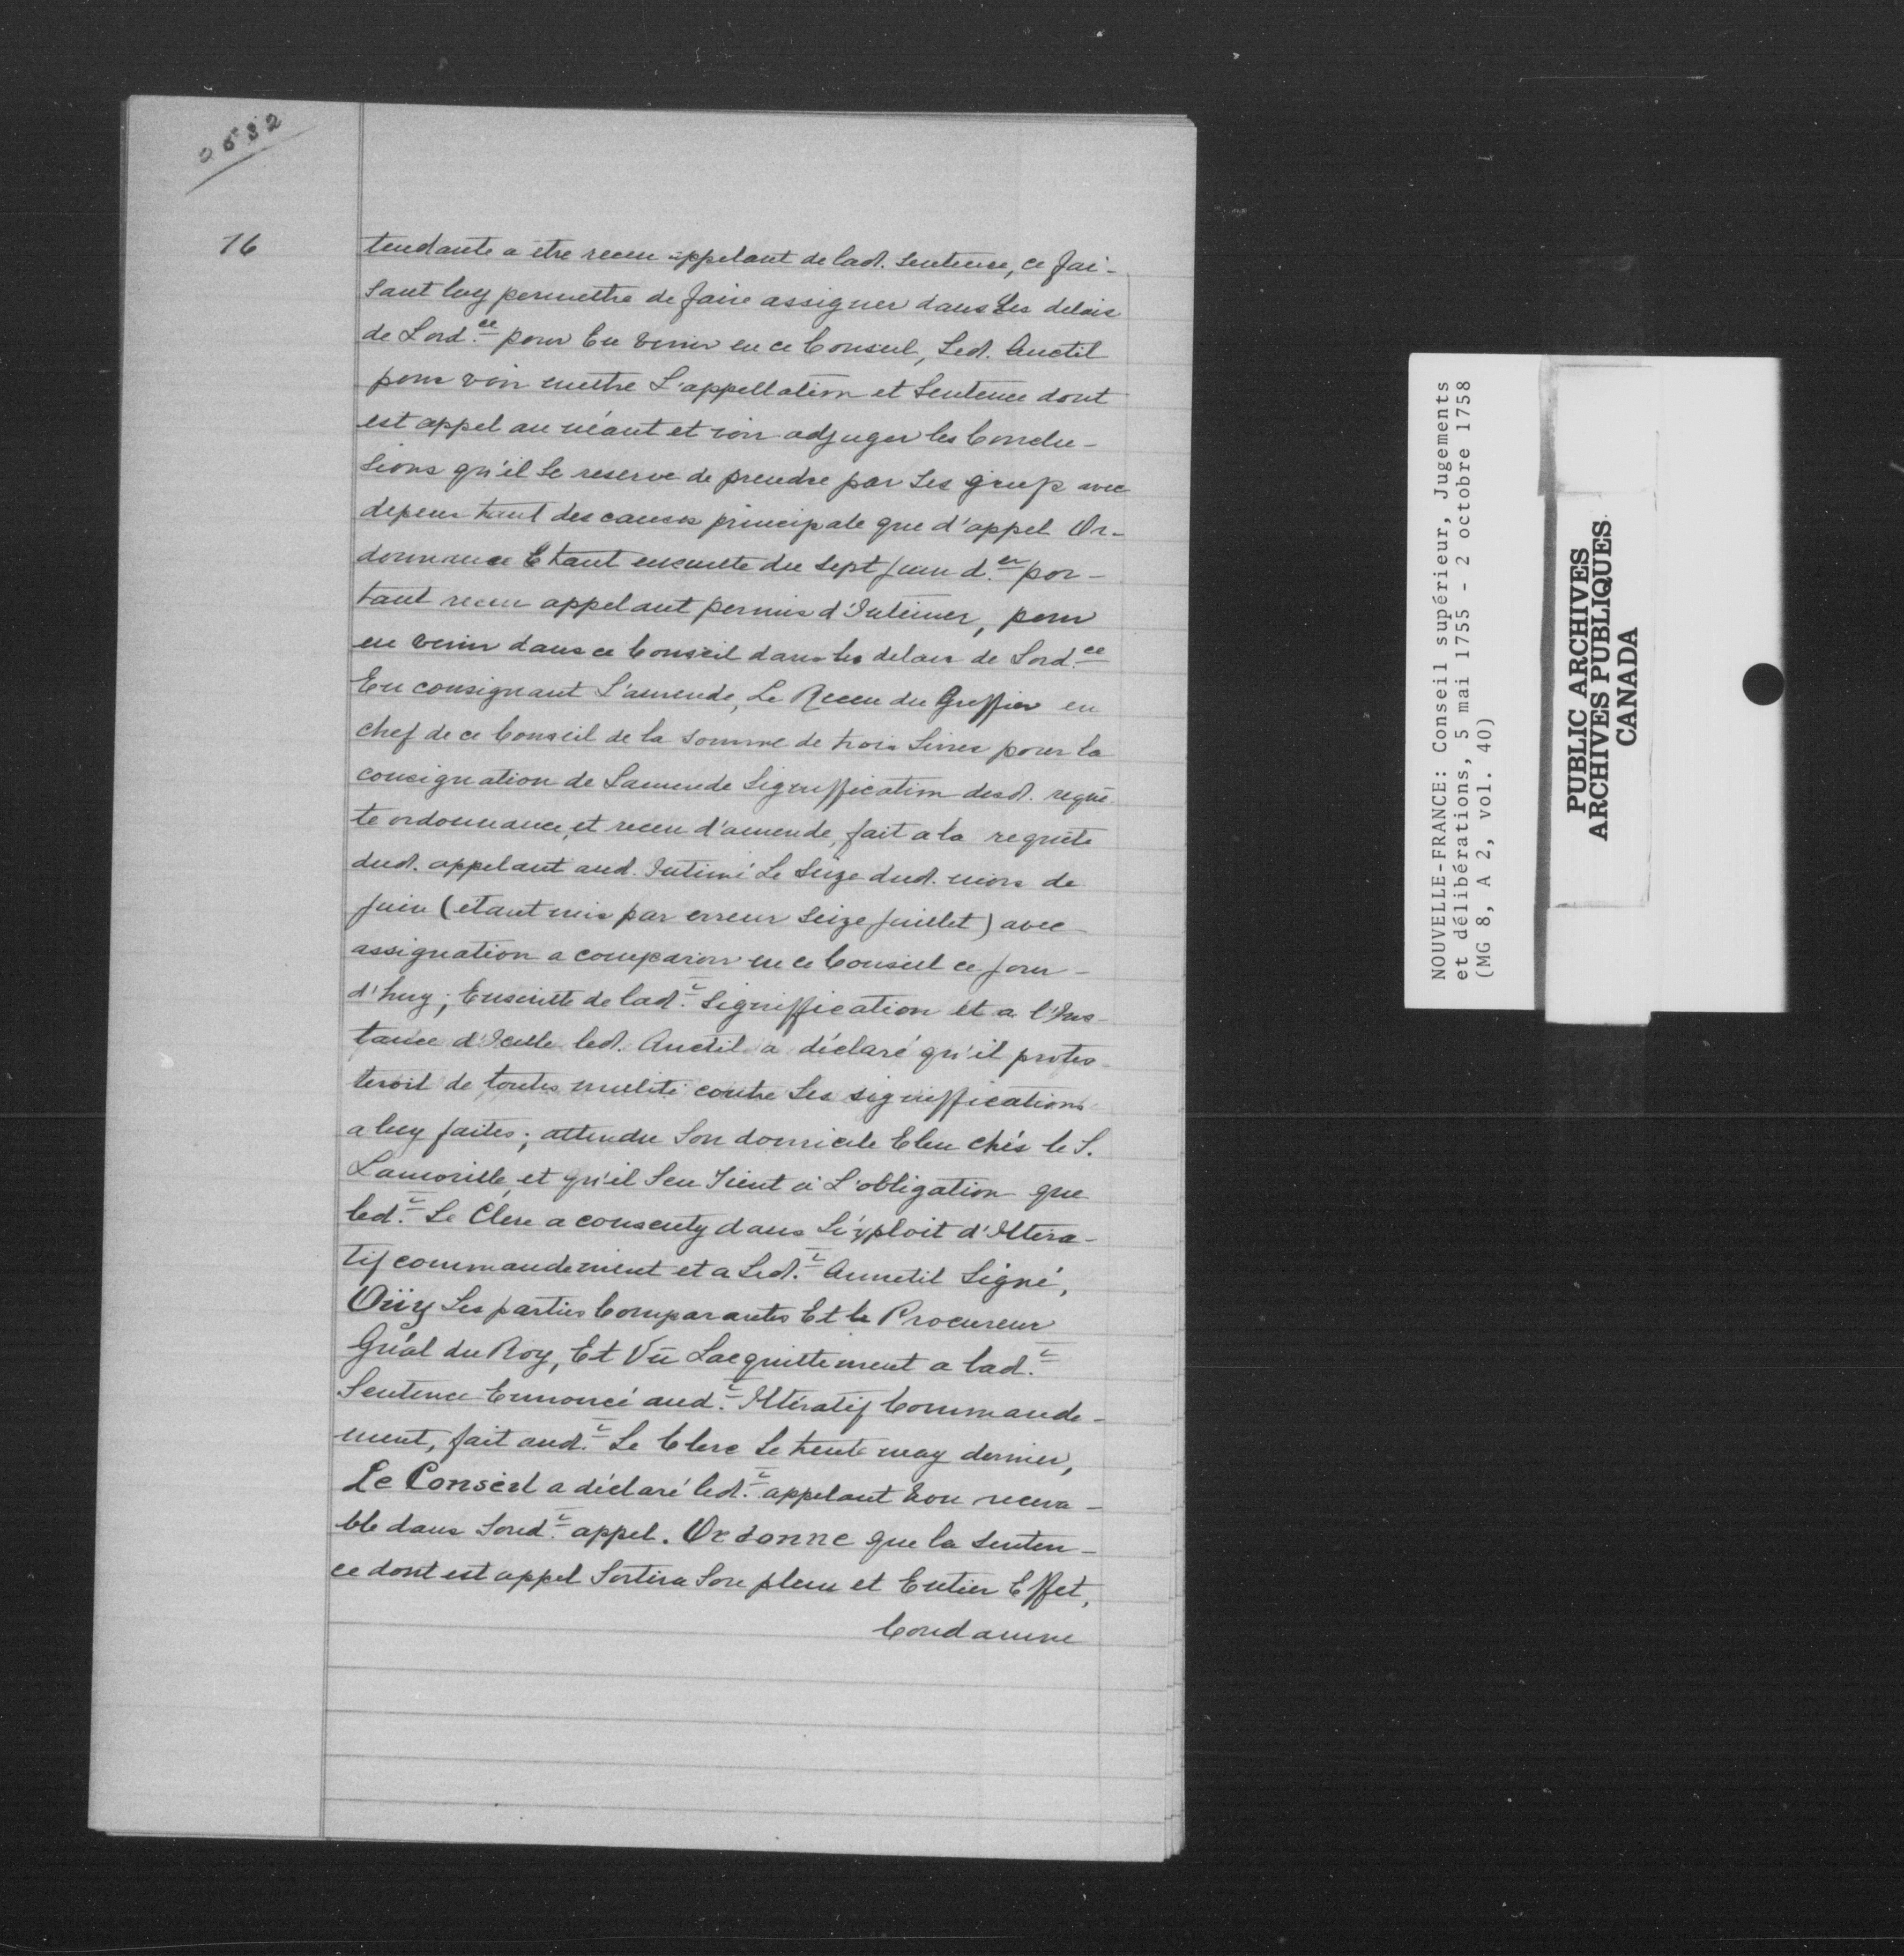 0532
76
tendante a être receu appelant de lad. Sentence, ce fai-
sant luy permettre de faire assigner dans Les delais
de Lord.ce pour En venir en ce Conseil, Led. Anctil
pour voir mettre L'appellation et Sentence dont
est appel au néant et voir adjuger les Conclu-
sions qu'il Se reserve de prendre par Ses avec
depens tant des causes principale que d'appel Or-
donnance Etant ensuitte du Sept Juin d.er por-
tant receu appelant permis d'Intimer, pour
en venir dans ce Conseil dans les delais de Lord.ce
En consignant L'amende, Le Receu du Greffier en
chef de ce Conseil de la Somme de trois Livres pour la
consignation de Lamende Signiffication desd. requê-
te ordonnance, et receu d'amende, fait a la requête
dud. appelant aud. Intimé Le Seize dud. mois de
Juin (étant mis par erreur Seize Juillet) avec
assignation a comparoir en ce Conseil ce jour-
d'huy; Ensuitte de lad.e Signiffication et a l'Ins-
tance d'Icelle led. Anctil a déclaré qu'il protes-
teroit de toutes nulité contre Les signiffications
a luy faites; attendu Son domicile Eleu chés le S.
Lanoville, et qu'il Sen Tient à L'obligation que
led.t Le Clerc a consenty dans L'éxploit d'Itéra-
tif commandement et a Led.t Annctil Signé,
Oüy Les parties Comparantes Et le Procureur
Gnéal du Roy, Et Vû Lacquittement a lad.te
Sentence Ennoncé aud.t Itératif Commande-
ment, fait aud.t Le Clerc Le trente may dernier,
Le Conseil a déclaré led.t appelant non receva-
ble dans Sond.t appel. Ordonne que la Senten-
ce dont est appel Sortira Son plein et Entier Effet,
Condamne
NOUVELLE-FRANCE: Conseil supérieur, Jugements
et délibérations, 5 mai 1755 - 2 octobre 1758
(MG 8, A 2, vol. 40)
PUBLIC ARCHIVES
ARCHIVES PUBLIQUES
CANADA